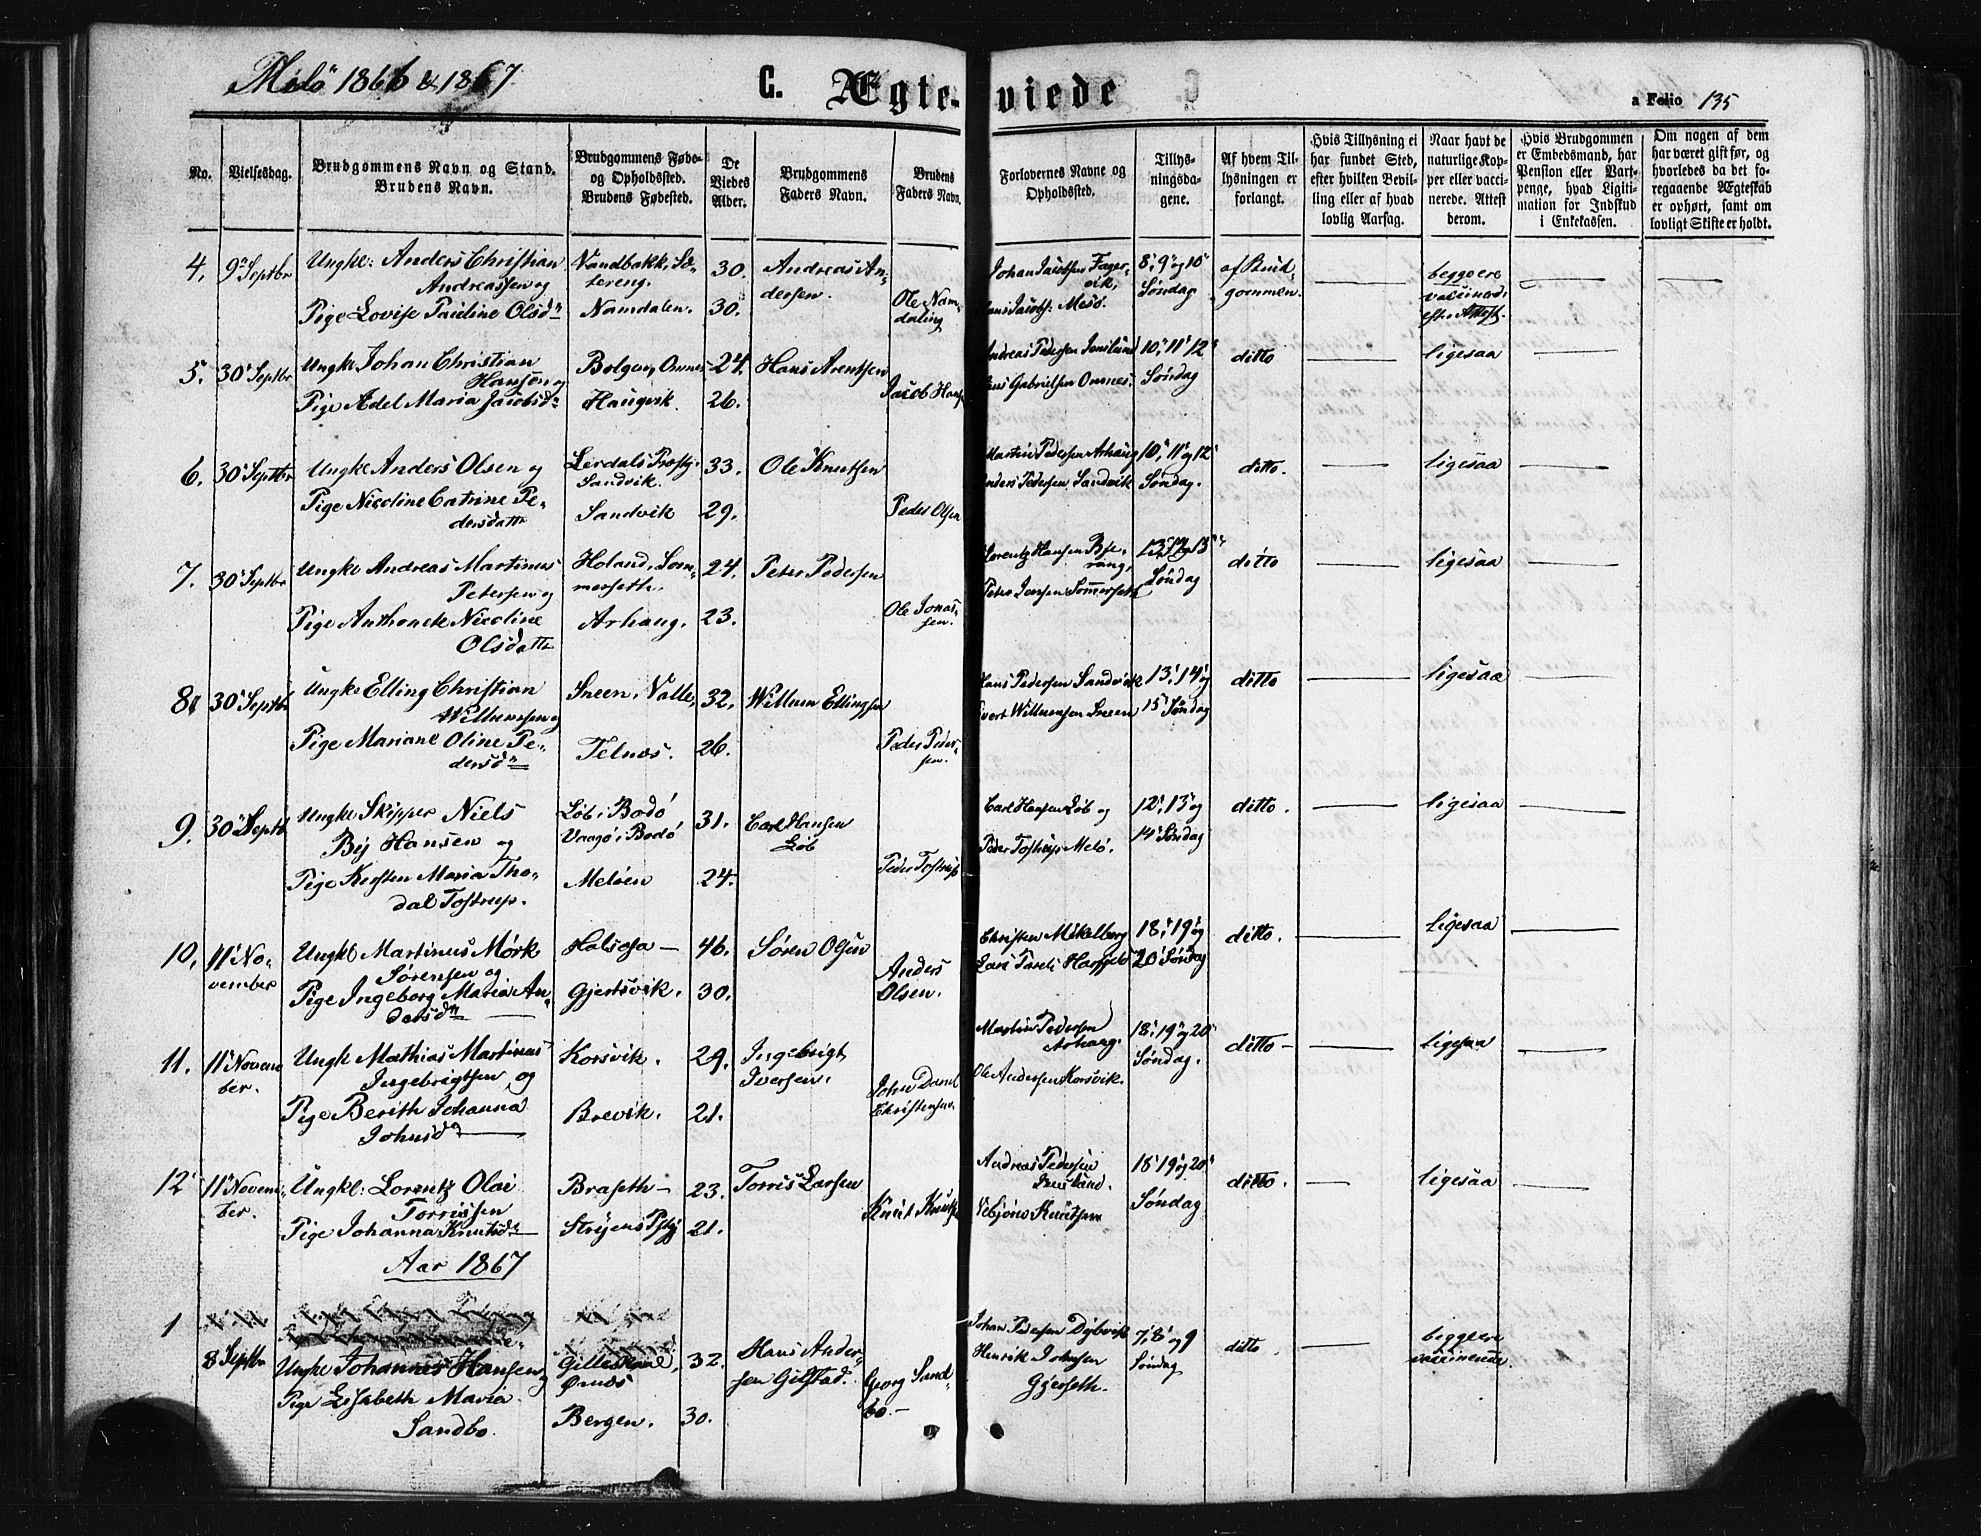 Melö 1866 & 1867
C. Ægteviede
a Folio 135
No.
Vielsesdag.
Brudgommens Navn og Stand. Brudens Navn.
Brudgommens Føde- og Opholdssted. Brudens Fødested.
De Viedes Alder.
Brudgommens Faders Navn.
Brudens Faders Navn.
Forlovernes Navne og Opholdssted.
Tillysningsdagene.
Af hvem Tillysningen er forlangt.
Hvis Tillysning ei har fundet Sted, efter hvilken Bevilling eller af hvad lovlig Aarsag.
Naar havt de naturlige Kopper eller vaccinerede. Attest derom.
Hvis Brudgommen er Embedsmand, har Pension eller Vartpenge, hvad Ligitimation for Indskud i Enkekassen.
Om nogen af dem har været gift før, og hvorledes da det foregaaende Ægteskab er ophørt, samt om lovligt Skifte er holdt.
4. 9" Septbr Ungkl: Anders Christian Andreassen og 30. Andreas Andersen. Johan Jacobsen 8', 9' og 10' Søndag af Brudgommen. beggoere
Pige Lovise Pauline Olsd. Namdalen. 30. Ole Namdaling Melö. Attest.
5. 30' Septbr Ungke Johan Christian Hansen og Bolgen, Onnes 24. Hans Arentsen Andreas Pedersen 10', 11', 12' Søndag ditto ligesaa
Pige Adel Maria Jacobsd. Haugvik. 26. Jacob Hans Gabrielsen Onnes.
6. 30' Septbr Ungke Anders Olsen og Lerdals Prstgj. Sandvik. 33. Ole Knutsen Martin Pedersen Arhaug 10', 11' og 12' Søndag. ditto. ligesaa
Pige Nicoline Catrine Pedersdattr Sandvik 29. Peder Olsen Anders Pedersen Sandvik
7. 30' Septbr Ungke Andreas Martinus Petersen og Holand, Sommerseth. 24. Peter Pedersen Lorentz Hansen Søndag ditto ligesaa
Pige Anthonete Nicoline Olsdattr Arhaug. 23. Ole Jonassen. Peter Jensen Sommerseth
8. 30' Septbr Ungke Elling Christian Willumsen og Sneen, Valle, 32. Willum Ellingsen Hans Pedersen Sandvik 13', 14' og 15' Søndag ditto ligesaa
Pige Mariane Oline Pedersd. Telnæs. 26. Peder Pedersen. Evert Willumsen Sneen
9. 30' Septb Ungke Skipper Niels Bij Hansen og Løb i Bodö Vaagö i Bodö 31. Carl Hansen Løb Carl Hansen Løb og 12', 13' og 14' Søndag ditto. ligesaa
Pige Kirsten Maria Thodal Tostrup. Melöen 24. Peder Tostrup Peder Tostrup Melö.
10. 11' November Ungkl Martinus Mörk Sørensen og Halsosa 46. Søren Olsen Christen Mikelberg 18', 19' og 20' Søndag ditto. ligesaa
Pige Ingeborg Maria Andersd. Gjersvik. 30. Anders Olsen.
11. 11' November. Ungk Mathias Martinus Ingebrigtsen og Korsvik. 29. Ingebrigt Iversen. Martin Pedersen Arhaug. 18', 19' og 20' Søndag. ditto ligesaa
Pige Berith Johanna Johnsd. Brevik. 21. John Danl Christensen. Ole Andersen Korsvik.
12' 11' November. Ungkl: Lorentz Olai Torrissen Braseth 23. Torris Larsen Andreas Pedersen 18' 19' og 20' Søndag ditto. ligesaa
Pige Johanna Knutsd. Stryens Pstgj 21. Knut Knutsen Knutsen
Aar 1867
1 8 Septbr Ungke Johannes Hansen og Gilleskaal, Ørnæs 32. Hans Andersen Gilstad. Johan Pedersen Dybvik 7', 8' og 9 Søndag ditto. beggeere vaccinerede.
Pige Elisabeth Maria Sandbo. Bergen. 30. Georg Sandbo. Henrik Johnsen Gjerseth.